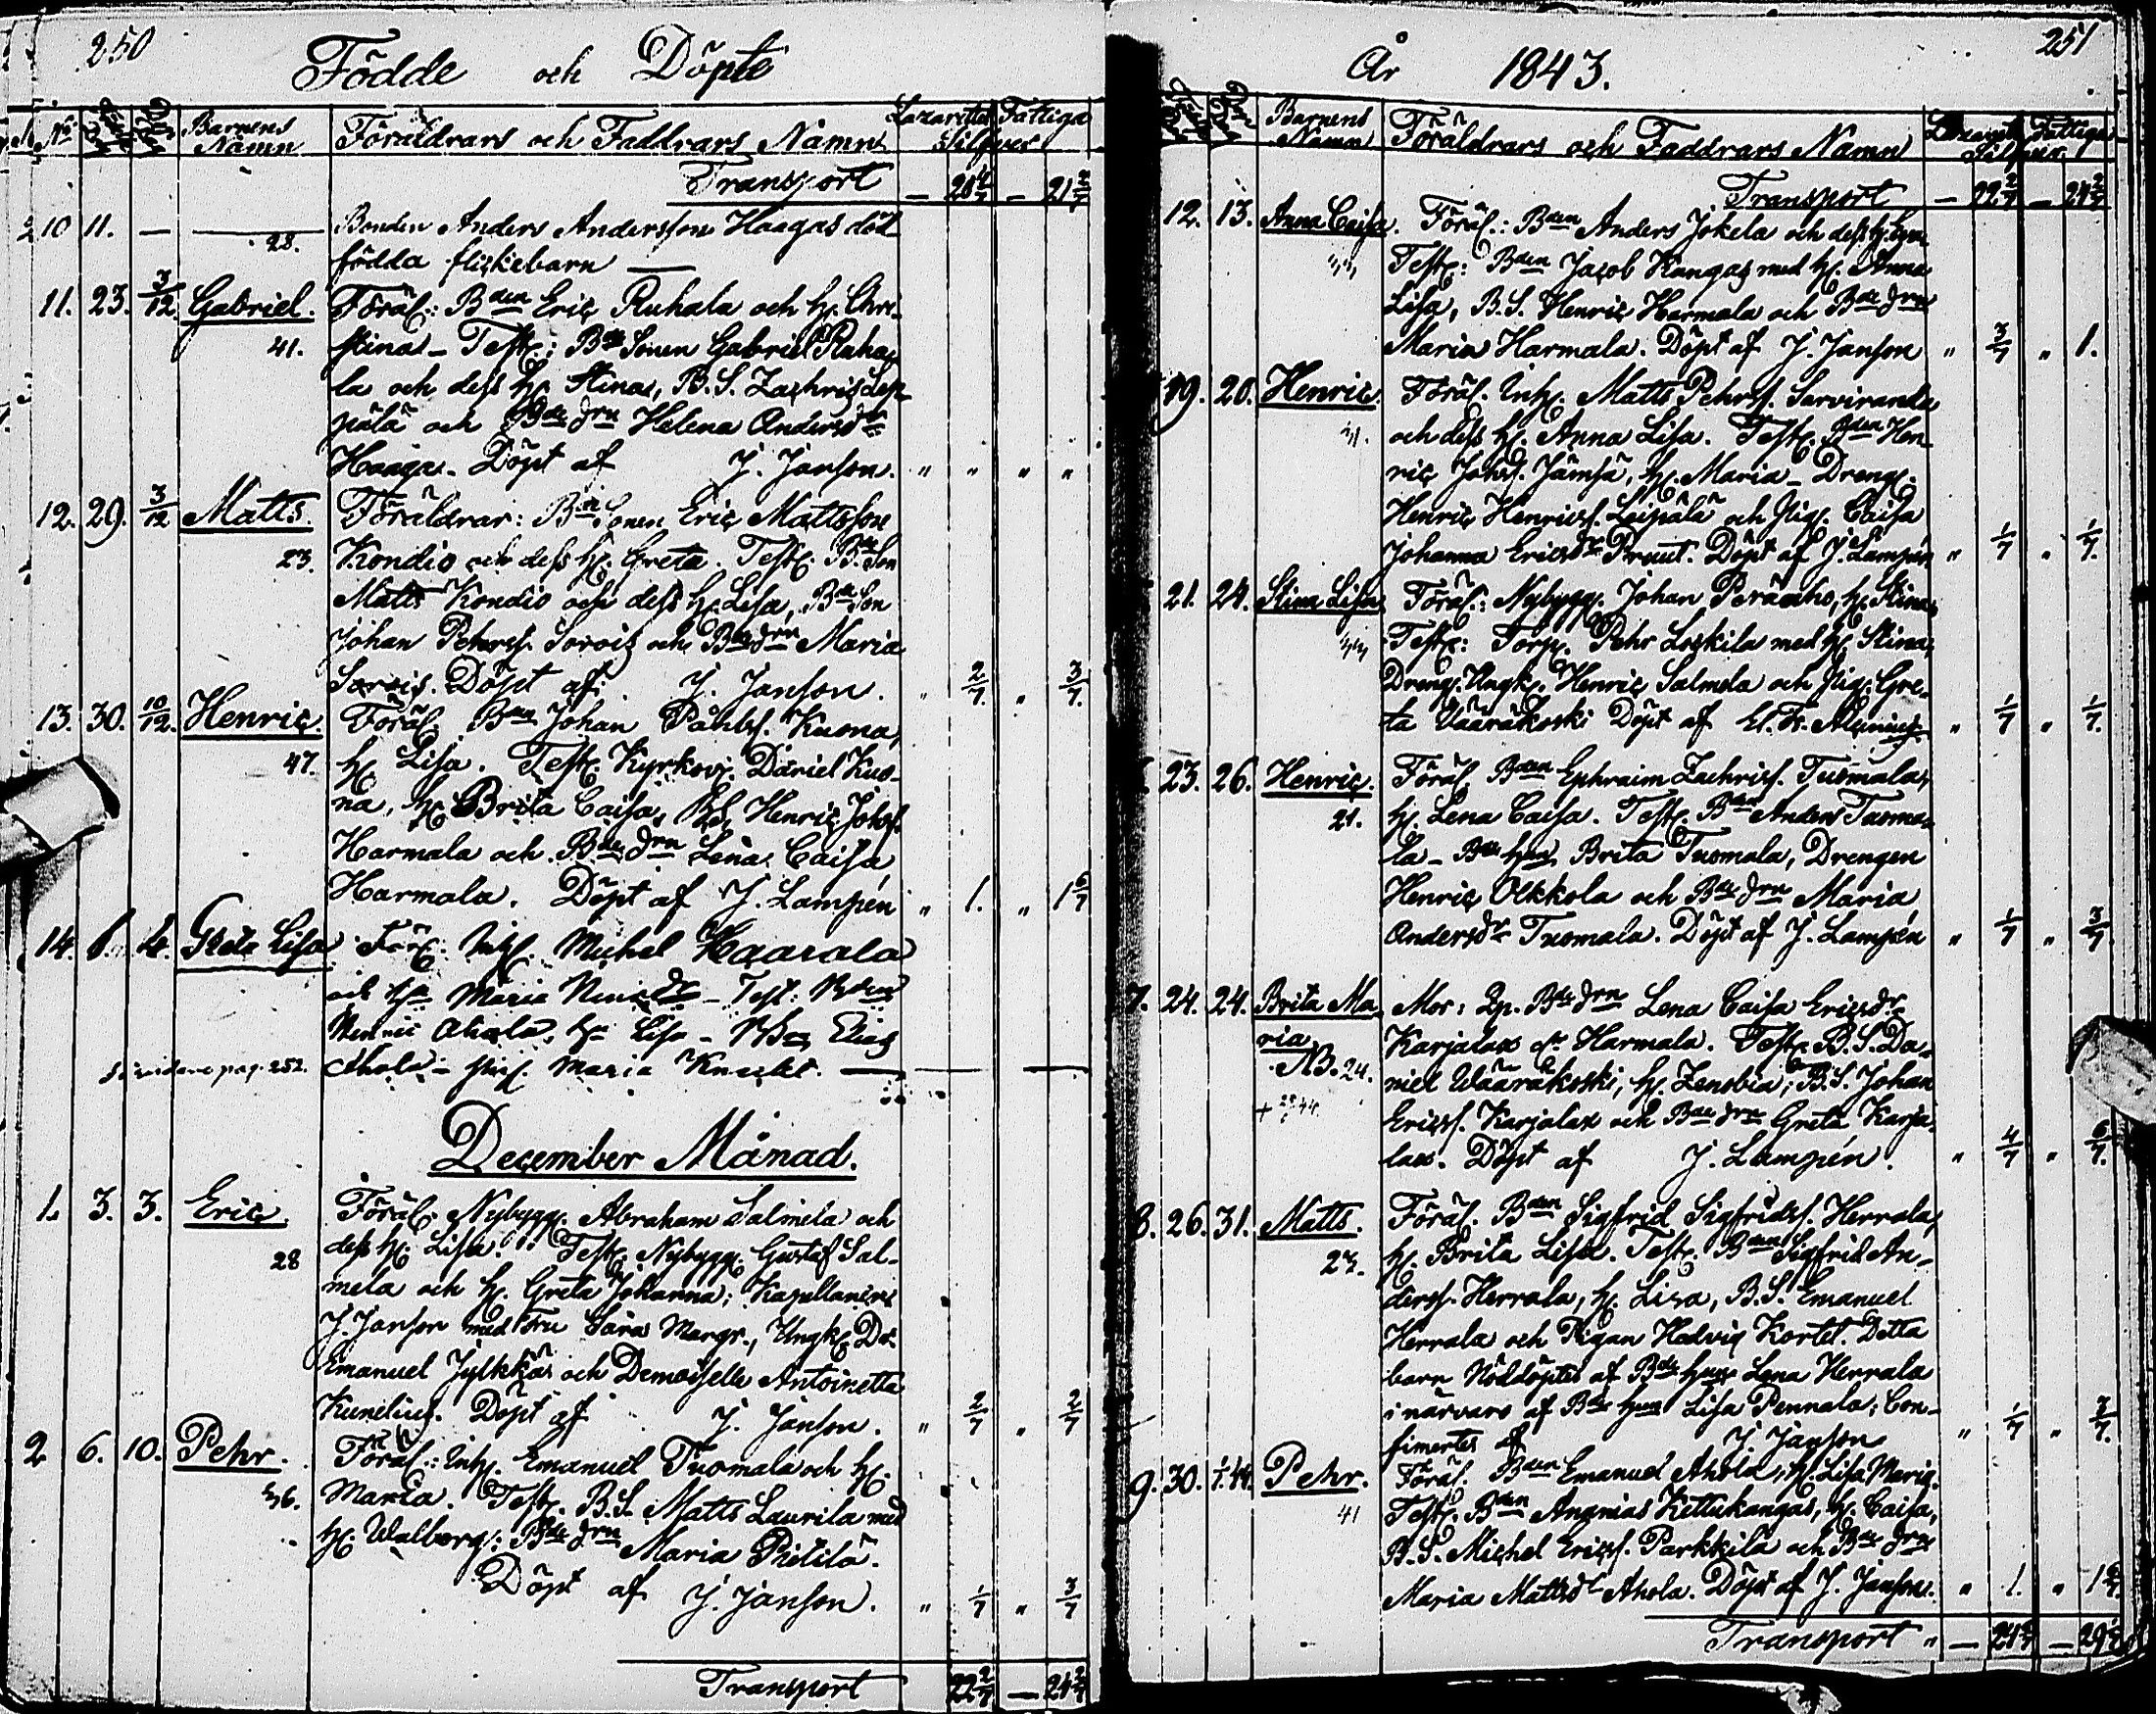 250
Födde och Döpte
No
Barnens Namn
Föräldrars och Faddrars Namn
Lazarettet Fattiga
Silfver
Transport — 20 4/7 — 21 2/7
10 11. — Bonden Anders Andersson Haagas död
28. födda flickebarn —
11. 23. 3/12 Gabriel. Föräl: Bden Eric Ruhala och H. Chri-
41. stina – Test: Bde Sonen Gabriel Ruha-
la och dess H. Stina, B.S. Zachris Lep-
pälä och Bde drn Helena Andersdr
Haaga. Döpt af J. Janson. " " " "
12. 29. 3/12 Matts. Föräldrar: Bde Sonen Eric Mattsson
23. Kondio och dess H. Greta. Test. Bde Son
Matts Kondio och dess H. Lisa, Bde Son
Johan Pehrss. Sorvis och Bde drn Maria
Sorvis. Döpt af J. Janson. " 2/7 " 3/7
13. 30. 10/12. Henric. Föräl. Bden Johan Påhlss. Kuona,
47. H. Lisa. Test. Kyrkov. Daniel Kuo-
na, H. Brita Caisa, B.S. Henric Johss.
Harmala och Bde drn Lena Caisa
Harmala. Döpt af J. Lampén " 1. " 1 6/7
14. Greta Lisa För: Inh. Michel Haarala
och Maria – Test: Bden
Henric Ahola, Hu Lisa – Elias
Se vidare pag. 252. Ahola – pig. Maria
December Månad.
1. 3. 3. Eric. Föräl. Nybygg. Abraham Salmela och
28 dess H. Lisa. Test. Nybygg. Gustaf Sal-
mela och H. Greta Johanna; Kapellanen
J. Janson med Fru Sara Margr., Ungk. Dr.
Emanuel Jylkkä och Demoiselle Antoinetta
Kunelius. Döpt af J. Janson. " 2/7 " 2/7
2 6. 10. Pehr. Föräl.: Inh. Emanuel Tuomala och H.
36. Maria. Test. B.S. Matts Laurila med
H. Walborg: Bde drn Maria Pietilä.
Döpt af J. Janson. " 1/7 " 3/7
Transport 22 2/7 — 24 2/7
251
År 1843.
Barnens Namn
Föräldrars och Faddrars Namn
Lazarettet Fattiga
Silfver.
Transport — 22 2/7 — 24 2/7
12. 13. Anna Caisa. Föräl.: Bden Anders Jokela och dess H.
Test: Bden Jacob Kangas med H. Anna
Lisa, B.S. Henric Harmala och Bde drn
Maria Harmala. Döpt af J. Janson " 3/7 " 1.
19. 20. Henric. Föräl. Inh. Matts Pehrss. Sarviranta
och dess H. Anna Lisa. Test. Bden Hen-
ric Johss. Jämsä, H. Maria – Dreng.
Henric Henricss. Leipälä och Pig. Caisa
Johanna Ericsdr Pruut. Döpt af J. Lampén " 1/7 " 1/7.
21. 24. Stina Lisa Föräl.: Nybygg. Johan Peräaho, H. Stina
Test: Torp. Pehr Loskila med H. Stina,
Dreng. Ungk. Henric Salmela och Pig. Gre-
ta Wääräkoski Döpt af " 1/7 " 1/7.
23. 26. Henric. Föräl. Bden Ephraim Zachriss. Tuomala,
21. H. Lena Caisa. Test. Bden Anders Tuoma-
la – Bde hun Brita Tuomala, Drengen
Henric Olkkola och Bde drn Maria
Andersdr Tuomala. Döpt af J. Lampén " 1/7 " 3/7
7. 24. 24. Brita Ma- Mor: Bde drn Lena Caisa Ericsdr
ria Karjalax Harmala. Test. B.S. Da-
NB. 24. niel Wääräkoski, H. Zenobia; B.S. Johan
Ericss. Karjalax och Bde drn Greta Karja-
lax. Döpt af J. Lampén. " 4/7 " 6/7.
8. 26. 31. Matts. Föräl. Bden Sigfrid Sigfridss. Herrala,
23. H. Brita Lisa. Test. Bden Sigfrid An-
derss. Herrala, H. Lisa, B.S. Emanuel
Herrala och Pigan Hedvig Kortet. Detta
barn Nöddöptes af Bde hun Lena Herrala
i närvaro af Bde hun Lisa Pennala; Con-
fimertes af J. Janson " 1/7 " 2/7.
9. 30. 1/1 44. Pehr. Föräl. Bden Emanuel Ahola, H. Lisa Maria.
41 Test. Bden Ananias Kettukangas, H. Caisa,
B.S. Michel Ericss. Parkkila och Bde drn
Maria Mattsdr Ahola. Döpt af J. Janson. " 1. "
Transport